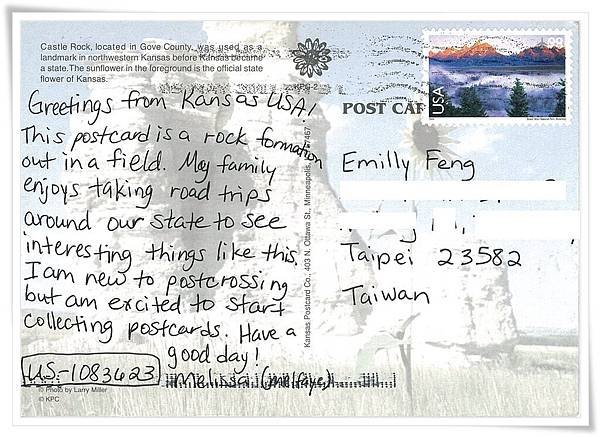 Castle Rock, located in Gove County, was used as a
landmark in northwestern Kansas before Kansas became
a state. The sunflower in the foreground is the official state
flower of Kansas.
Greetings from Kansas USA!
This postcard is a rock formation
out in a field. My family
enjoys taking road trips
around our state to see
interesting things like this.
I am new to postcrossing
but am excited to start
collecting postcards. Have a
good day!
US-1083623
Melissa
© Photo by Larry Miller
© KPC
Kansas Postcard Co., 403 N. Ottawa St., Minneapolis,
POST CAR
USA
Emilly Feng
Taipei 23582
Taiwan